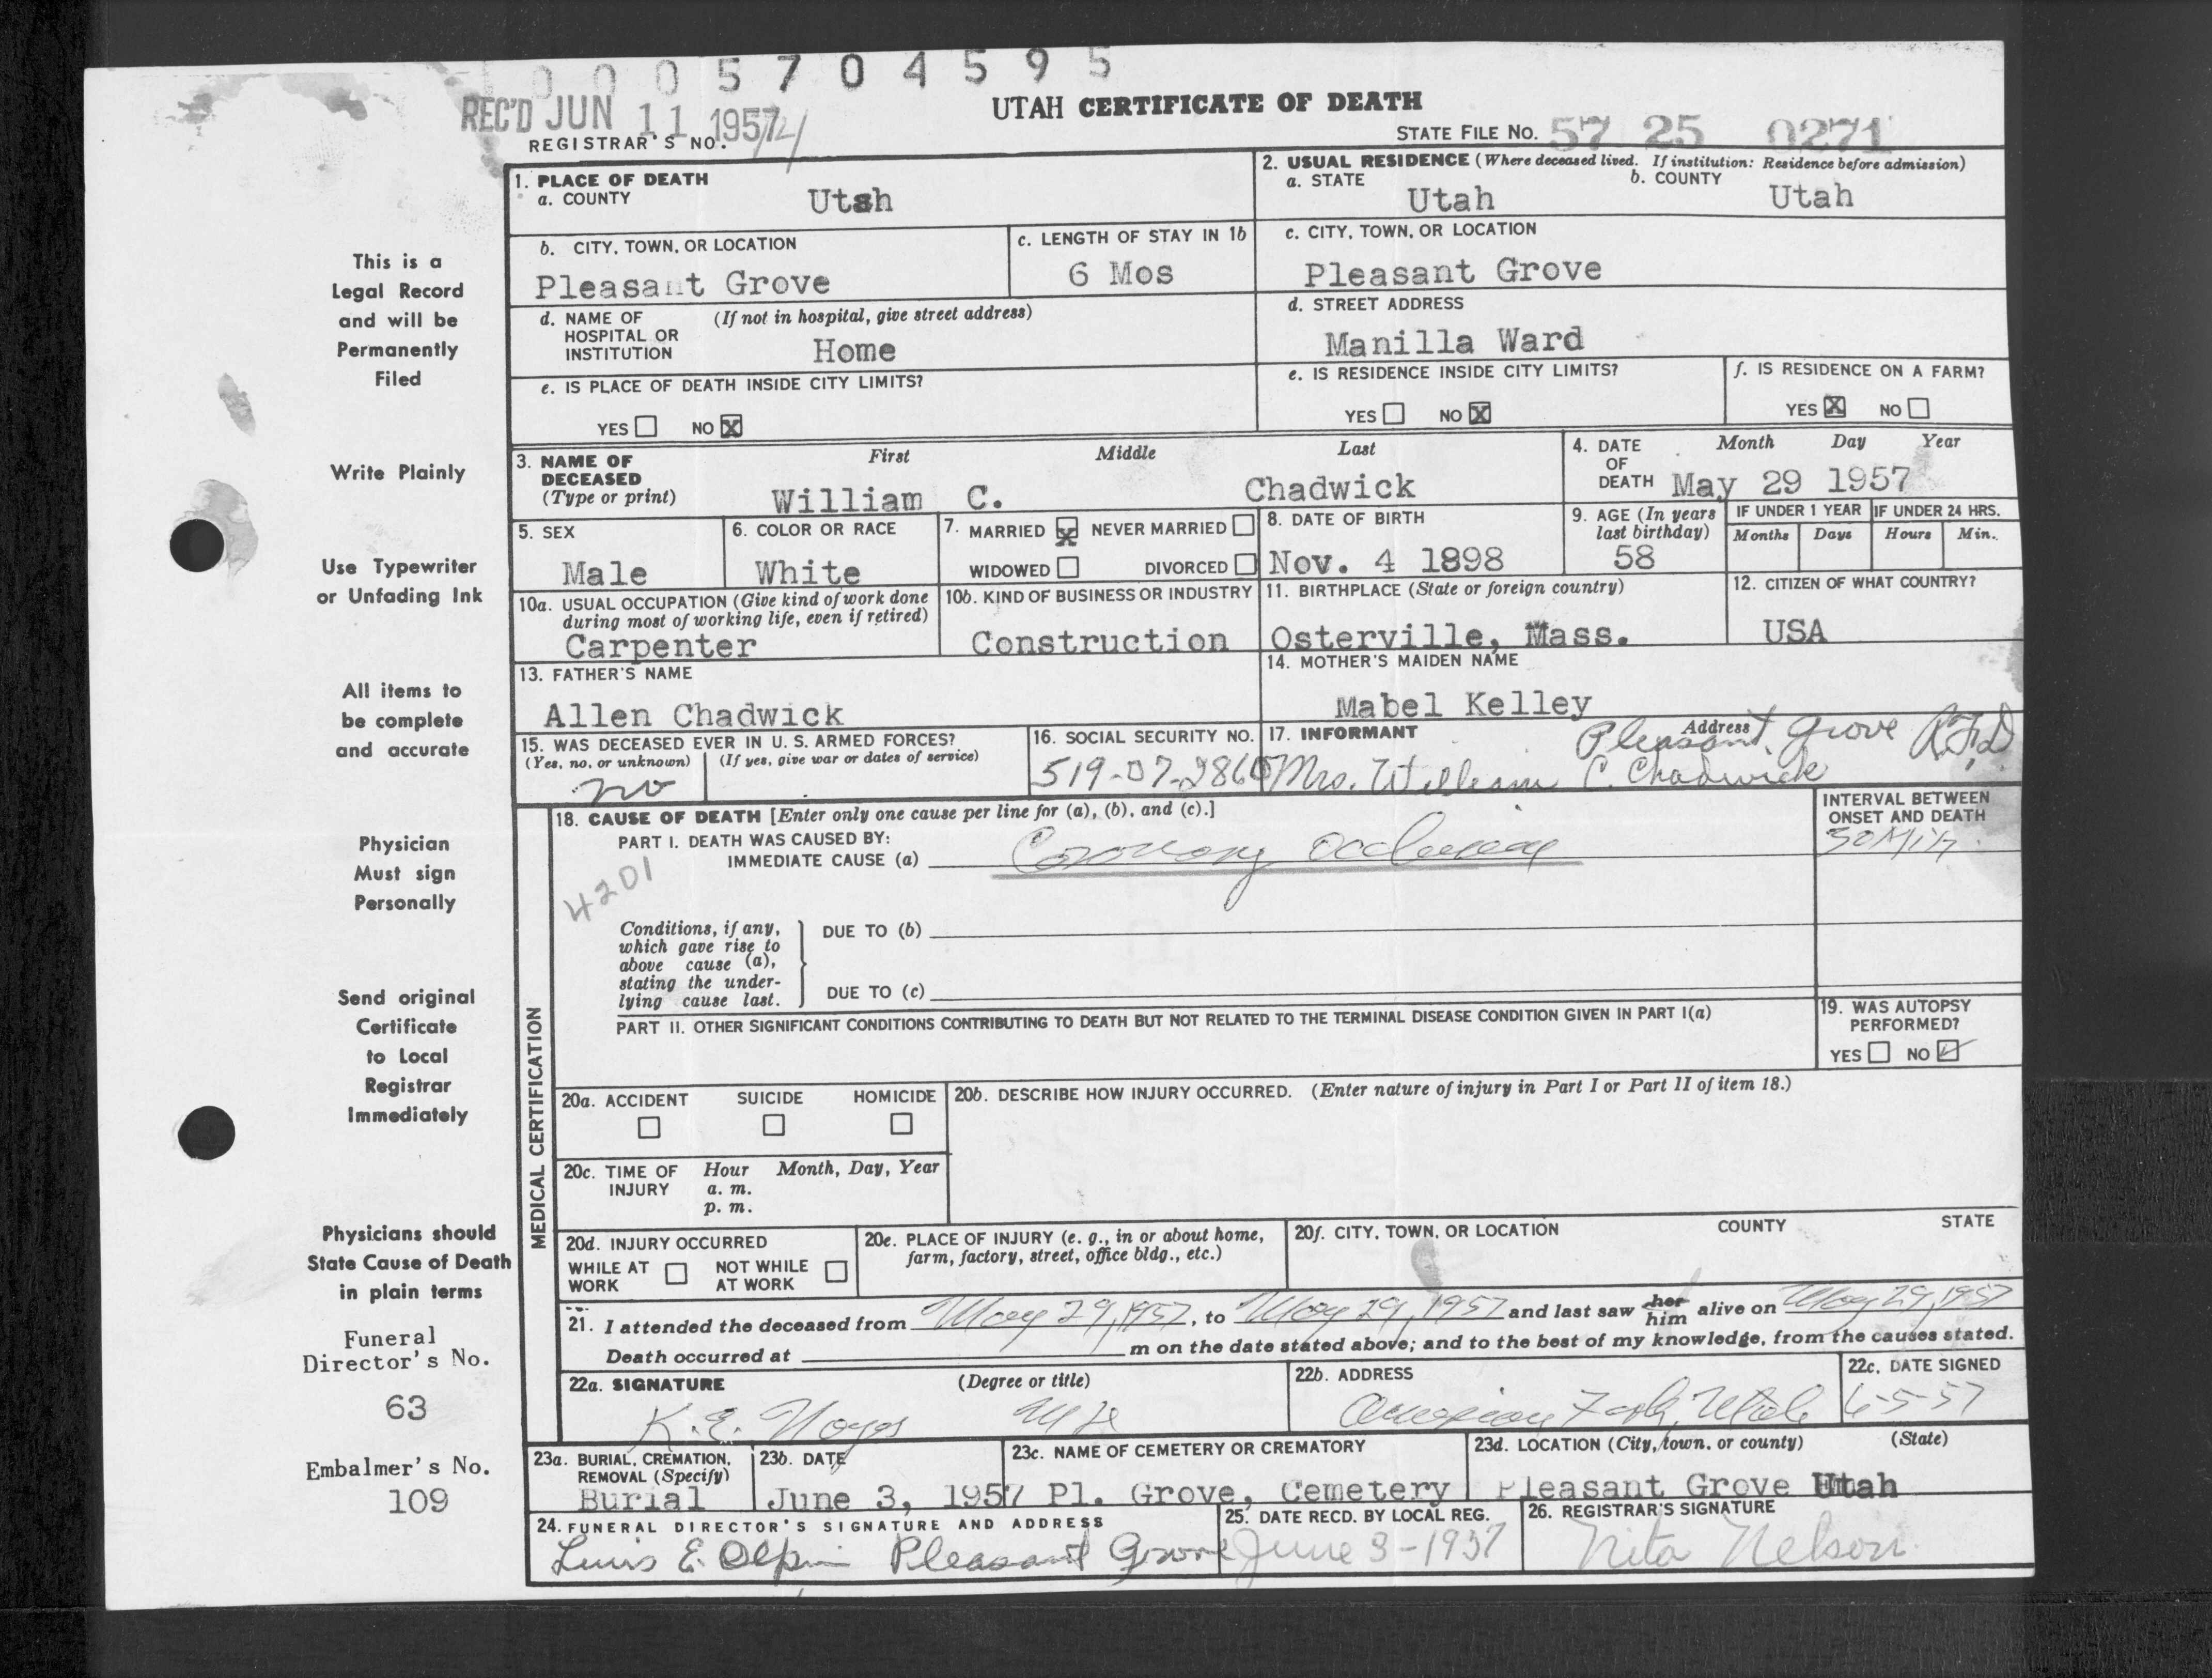 0005704595
REC'D JUN 11 1957
UTAH CERTIFICATE OF DEATH
REGISTRAR'S NO.
STATE FILE NO. 57 25 0271
This is a
Legal Record
and will be
Permanently
Filed
Write Plainly
Use Typewriter
or Unfading Ink
All items to
be complete
and accurate
Physician
Must sign
Personally
Send original
Certificate
to Local
Registrar
Immediately
Physicians should
State Cause of Death
in plain terms
Funeral
Director's No.
63
Embalmer's No.
109
1. PLACE OF DEATH
a. COUNTY Utah
2. USUAL RESIDENCE (Where deceased lived. If institution: Residence before admission)
a. STATE Utah b. COUNTY Utah
b. CITY, TOWN, OR LOCATION
Pleasant Grove
c. LENGTH OF STAY IN 1b
6 Mos
c. CITY, TOWN, OR LOCATION
Pleasant Grove
d. NAME OF HOSPITAL OR INSTITUTION (If not in hospital, give street address)
Home
d. STREET ADDRESS
Manilla Ward
e. IS PLACE OF DEATH INSIDE CITY LIMITS?
YES NO X
e. IS RESIDENCE INSIDE CITY LIMITS?
YES NO X
f. IS RESIDENCE ON A FARM?
YES X NO
3. NAME OF DECEASED (Type or print)
First Middle Last
William C. Chadwick
4. DATE OF DEATH Month Day Year
May 29 1957
5. SEX
Male
6. COLOR OR RACE
White
7. MARRIED X NEVER MARRIED
WIDOWED DIVORCED
8. DATE OF BIRTH
Nov. 4 1898
9. AGE (In years last birthday)
58
IF UNDER 1 YEAR IF UNDER 24 HRS.
Months Days Hours Min.
10a. USUAL OCCUPATION (Give kind of work done during most of working life, even if retired)
Carpenter
10b. KIND OF BUSINESS OR INDUSTRY
Construction
11. BIRTHPLACE (State or foreign country)
Osterville, Mass.
12. CITIZEN OF WHAT COUNTRY?
USA
13. FATHER'S NAME
Allen Chadwick
14. MOTHER'S MAIDEN NAME
Mabel Kelley
15. WAS DECEASED EVER IN U. S. ARMED FORCES?
(Yes, no, or unknown) (If yes, give war or dates of service)
no
16. SOCIAL SECURITY NO.
519-07-2860
17. INFORMANT Address
Pleasant Grove R.F.D
Mrs. William C. Chadwick
18. CAUSE OF DEATH [Enter only one cause per line for (a), (b), and (c).]
PART I. DEATH WAS CAUSED BY:
IMMEDIATE CAUSE (a) Coronary occlusion
INTERVAL BETWEEN ONSET AND DEATH
30 Min
4201
Conditions, if any,
which gave rise to
above cause (a),
stating the under-
lying cause last.
DUE TO (b)
DUE TO (c)
PART II. OTHER SIGNIFICANT CONDITIONS CONTRIBUTING TO DEATH BUT NOT RELATED TO THE TERMINAL DISEASE CONDITION GIVEN IN PART I(a)
19. WAS AUTOPSY PERFORMED?
YES NO
MEDICAL CERTIFICATION
20a. ACCIDENT SUICIDE HOMICIDE
20b. DESCRIBE HOW INJURY OCCURRED. (Enter nature of injury in Part I or Part II of item 18.)
20c. TIME OF INJURY Hour Month, Day, Year
a. m.
p. m.
20d. INJURY OCCURRED
WHILE AT WORK NOT WHILE AT WORK
20e. PLACE OF INJURY (e. g., in or about home, farm, factory, street, office bldg., etc.)
20f. CITY, TOWN, OR LOCATION COUNTY STATE
21. I attended the deceased from May 29, 1957, to May 29, 1957 and last saw her him alive on May 29, 1957
Death occurred at m on the date stated above; and to the best of my knowledge, from the causes stated.
22a. SIGNATURE (Degree or title)
K. E. Noyes
22b. ADDRESS
American Fork, Utah
22c. DATE SIGNED
6-5-57
23a. BURIAL, CREMATION, REMOVAL (Specify)
Burial
23b. DATE
June 3, 1957
23c. NAME OF CEMETERY OR CREMATORY
Pl. Grove, Cemetery
23d. LOCATION (City, town, or county) (State)
Pleasant Grove Utah
24. FUNERAL DIRECTOR'S SIGNATURE AND ADDRESS
E. Olpin Pleasant Grove
25. DATE RECD. BY LOCAL REG.
June 3-1957
26. REGISTRAR'S SIGNATURE
Nita Nelson